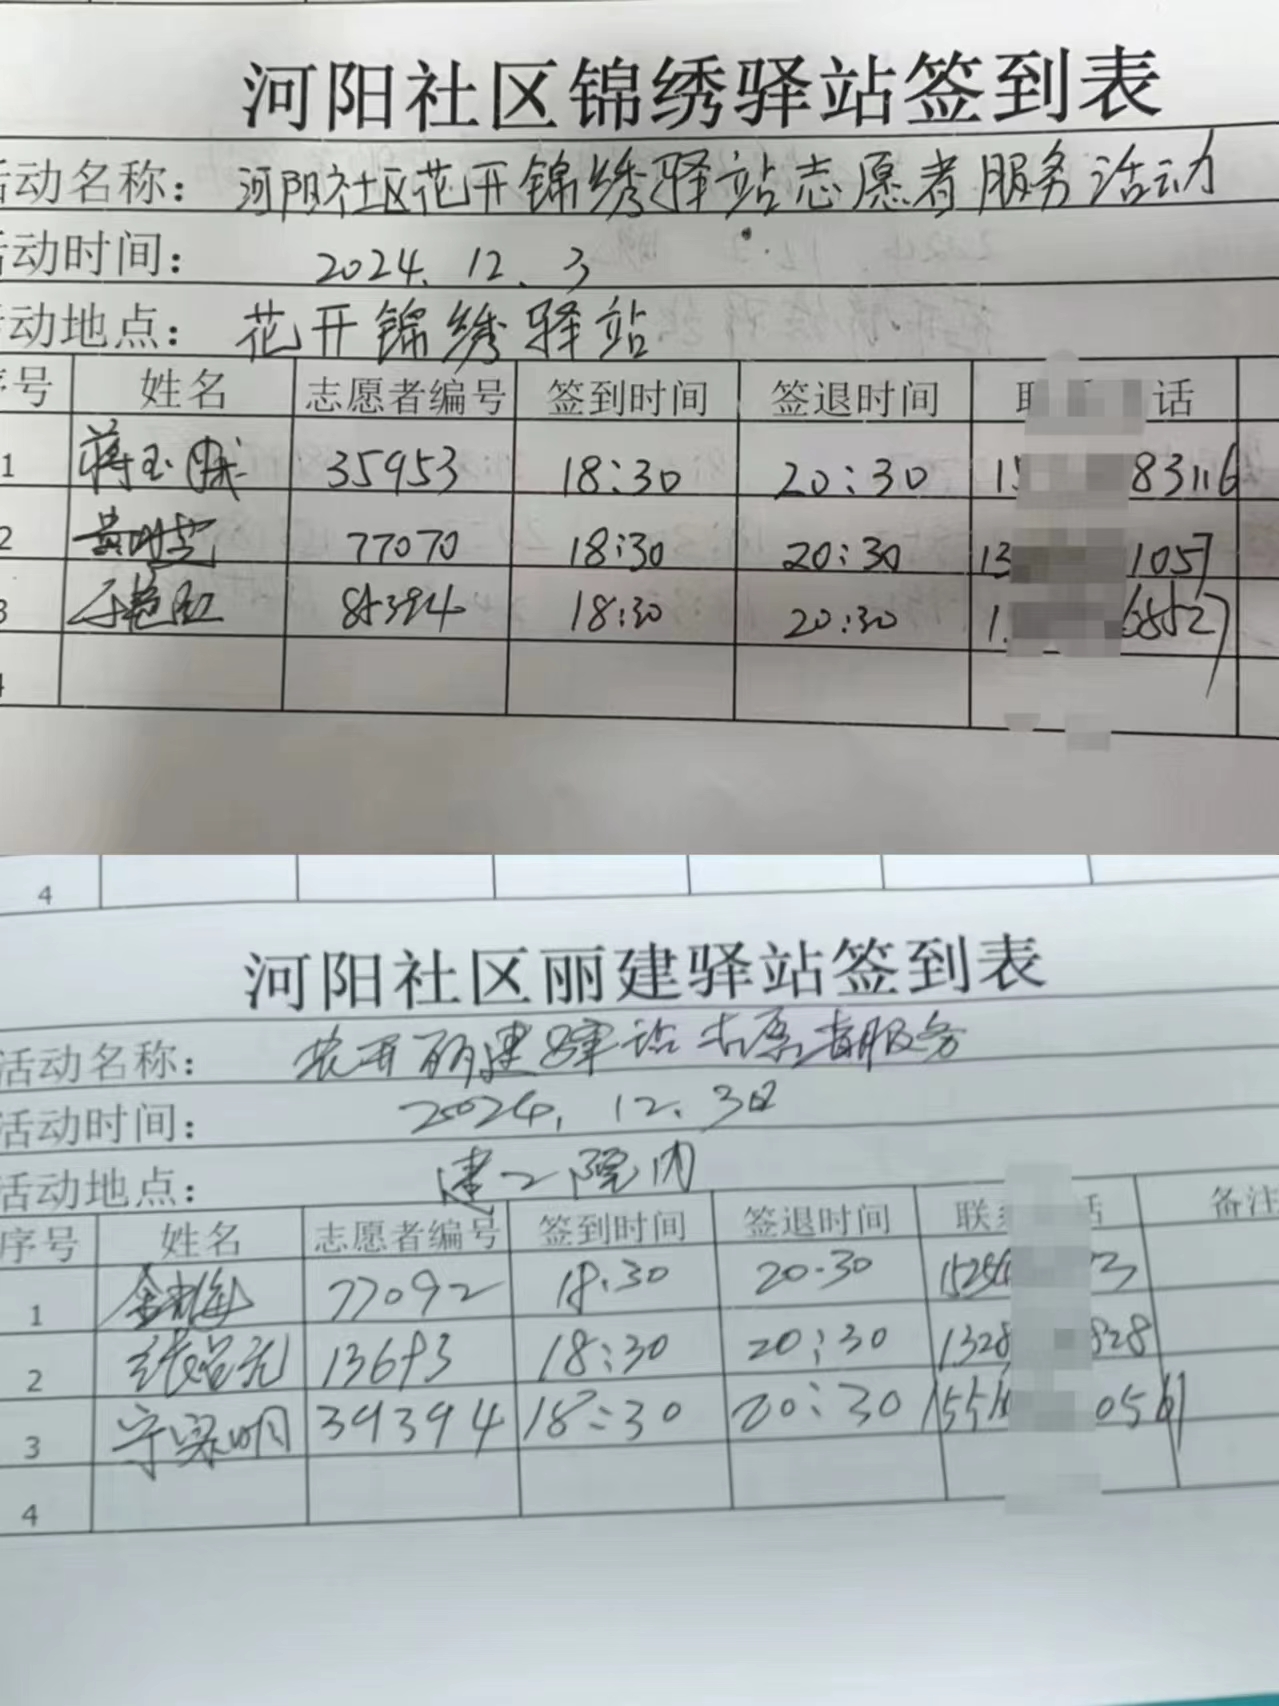 河阳社区锦绣驿站签到表
活动名称：河阳社区花开锦绣驿站志愿者服务活动
活动时间：2024.12.3
活动地点：花开锦绣驿站
序号 姓名 志愿者编号 签到时间 签退时间 话
1 蒋玉 35953 18:30 20:30 83116
2 77070 18:30 20:30 13 1057
3 于艳红 85394 18:30 20:30 1 68527
4
4
河阳社区丽建驿站签到表
活动名称：花开丽建驿站志愿者服务
活动时间：2024.12.3日
活动地点：建工院内
序号 姓名 志愿者编号 签到时间 签退时间 联系 话 备注
1 77092 18:30 20:30 1525 3
2 张召元 13693 18:30 20:30 1328 828
3 宁家明 39394 18:30 20:30 155 0561
4